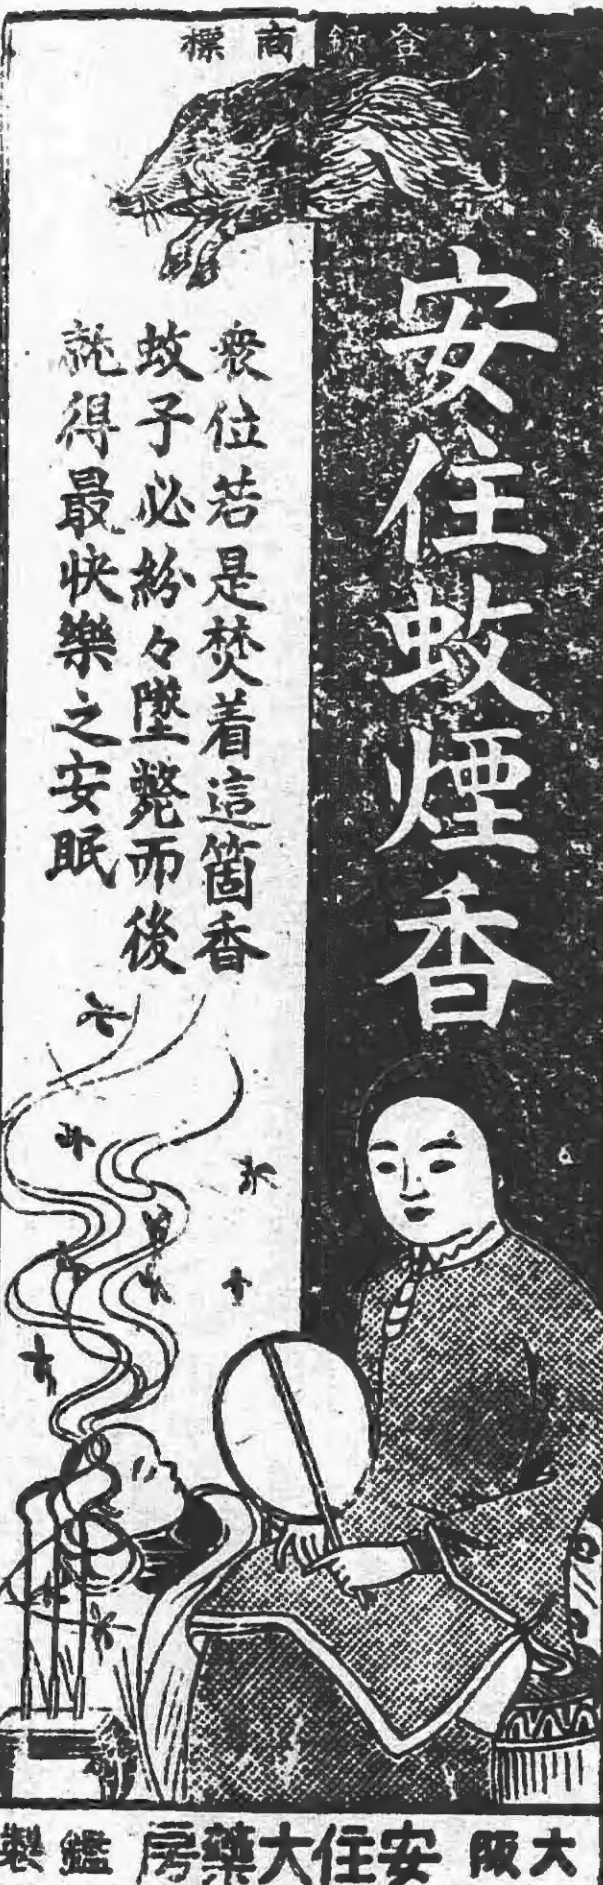 登錄商標
安住蚊煙香
衆位若是焚着這箇香
蚊子必紛々墜斃而後
就得最快樂之安眠
大阪 安住大藥房 鑑製